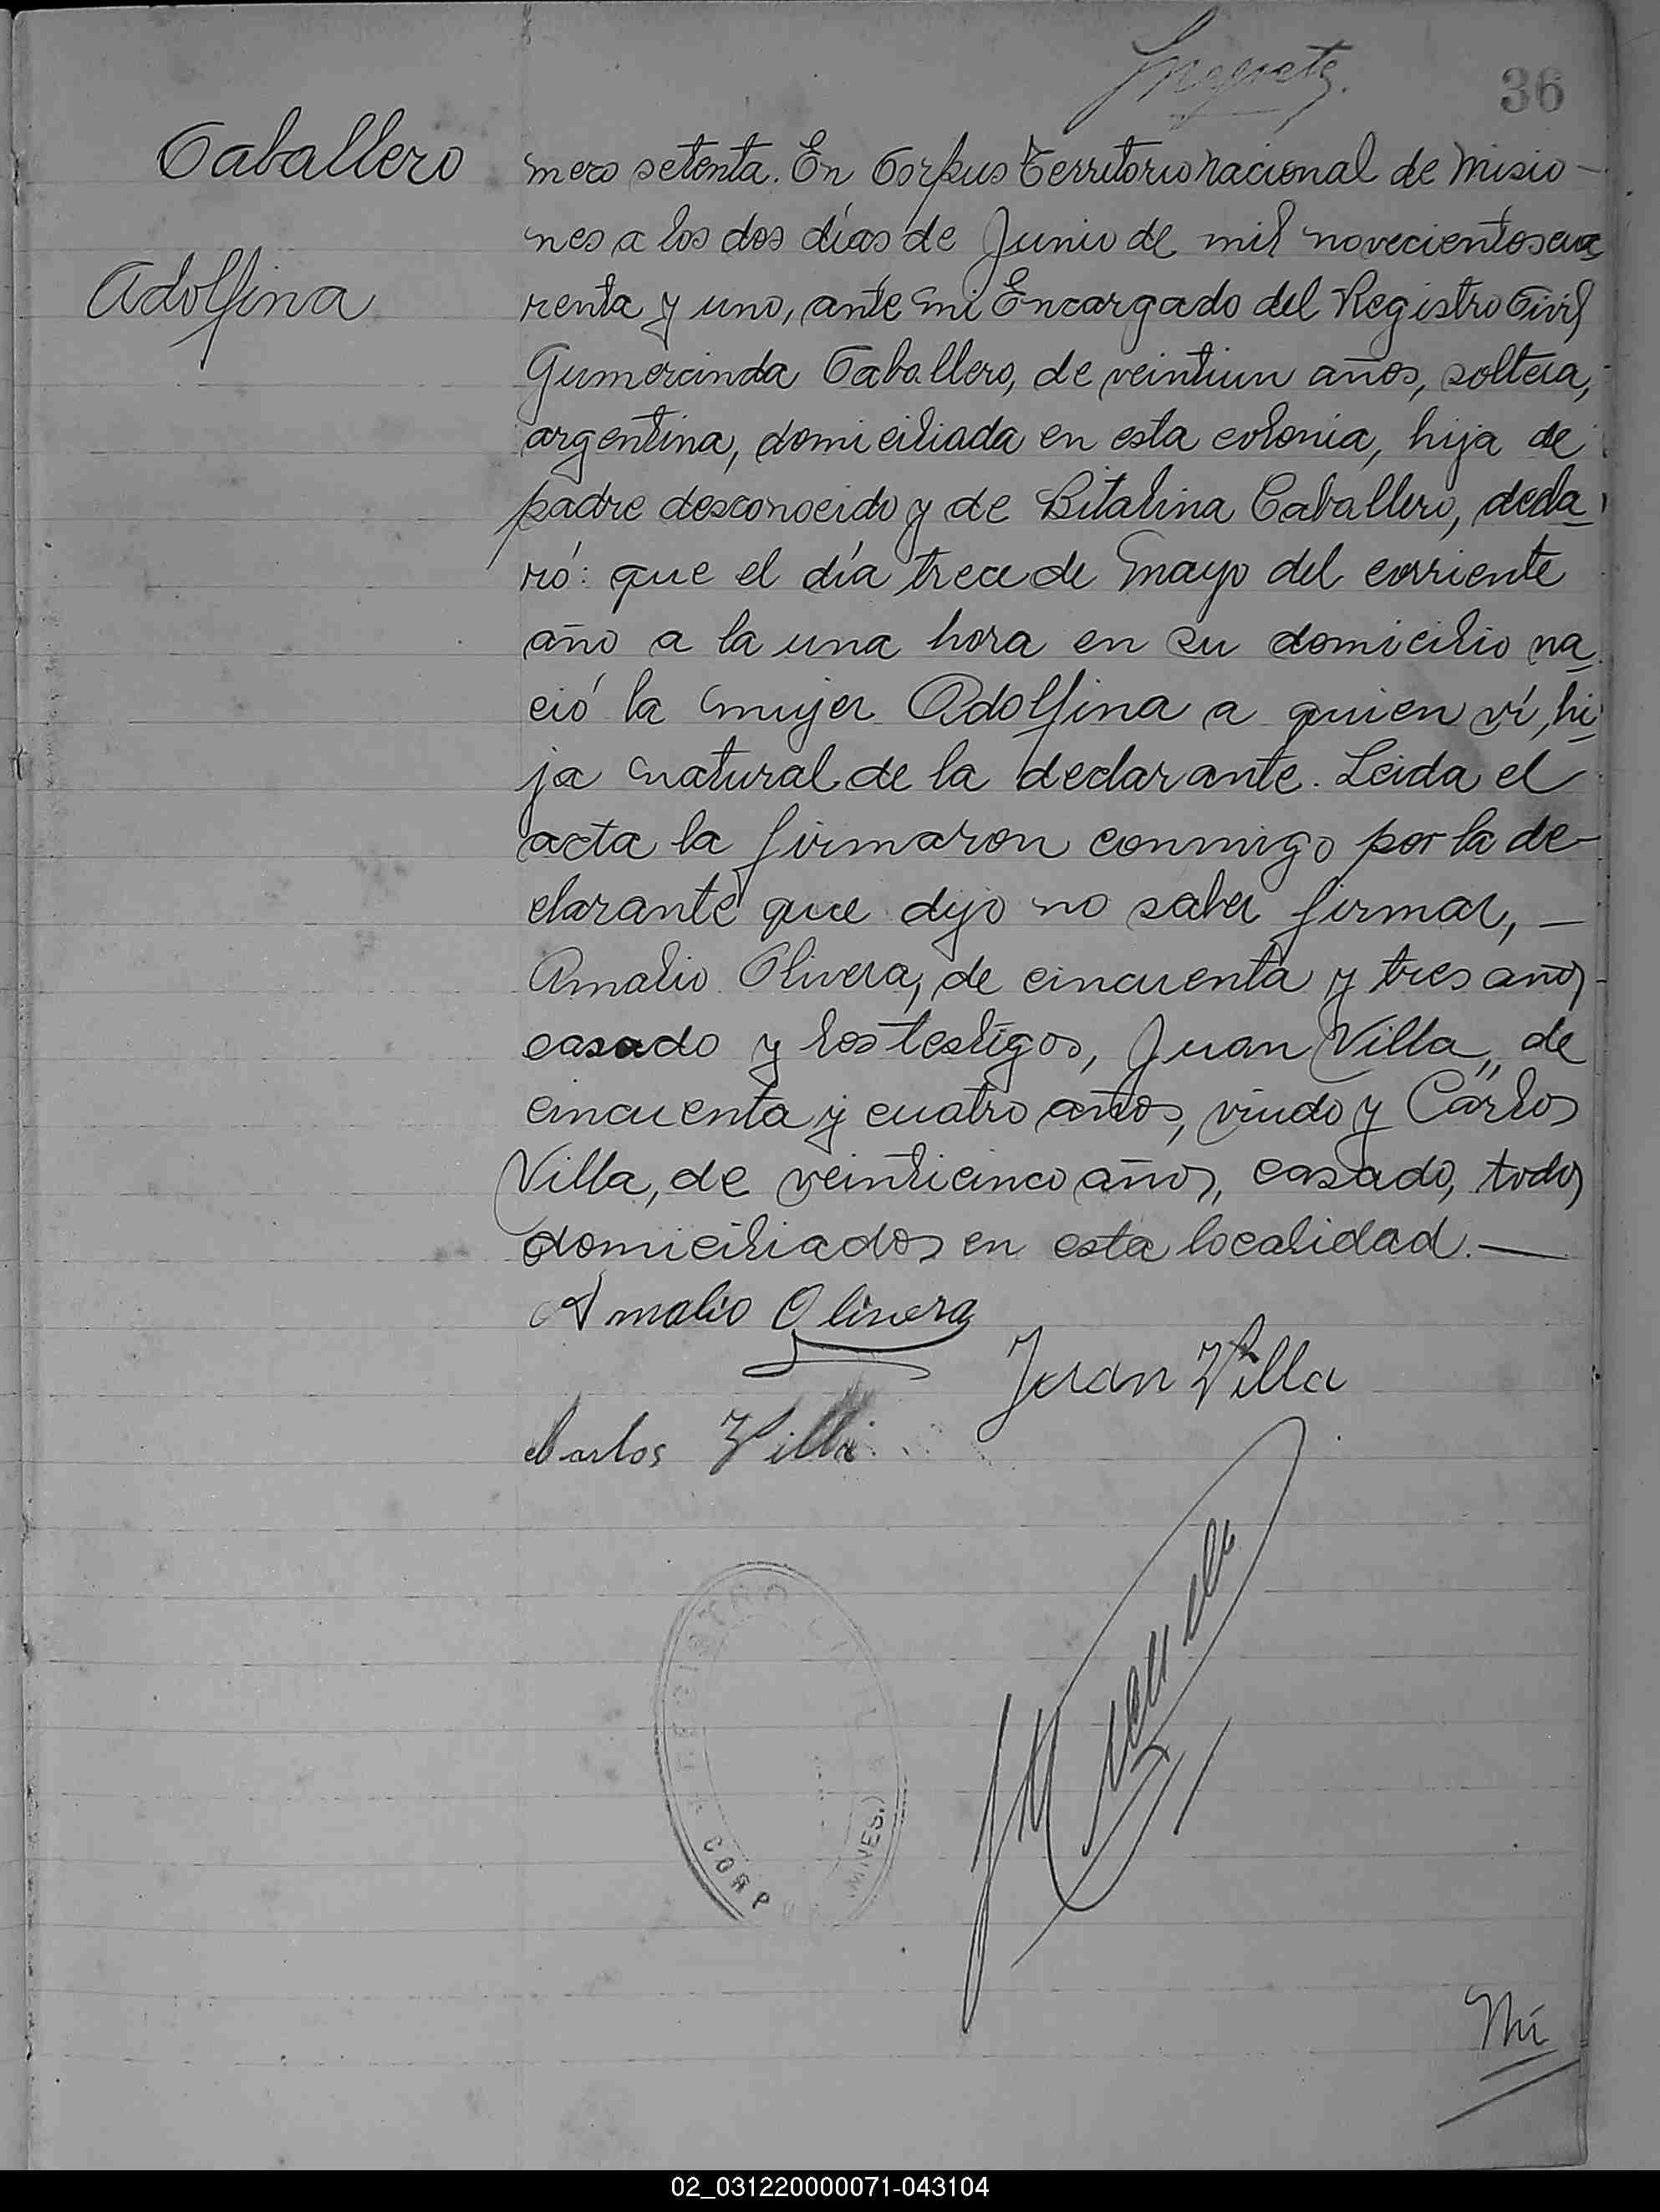 36
Caballero
Adolfina
mero setenta. En Corpus Territorio Nacional de Misio-
nes a los dos días de Junio de mil novecientos cua
renta y uno, ante mi Encargado del Registro Civil
Gumercinda Caballero, de veintiun años, soltera,
argentina, domiciliada en esta colonia, hija de
padre desconocido y de Bitalina Caballero, decla
ró: que el día trece de Mayo del corriente
año a la una hora en su domicilio na
ció la mujer Adolfina a quien ví, hi
ja natural de la declarante. Leida el
acta la firmaron conmigo por la de-
clarante que dijo no saber firmar, —
Amalio Olivera, de cincuenta y tres años
casado y los testigos, Juan Villa,, de
cincuenta y cuatro años, viudo y Carlos
Villa, de veinticinco años, casado, todos
domiciliados en esta localidad. —
Amalio Olivera
Juan Villa
Carlos Villa
REGISTRO CIVIL
CORPUS (MNES.)
Nú
02_031220000071-043104